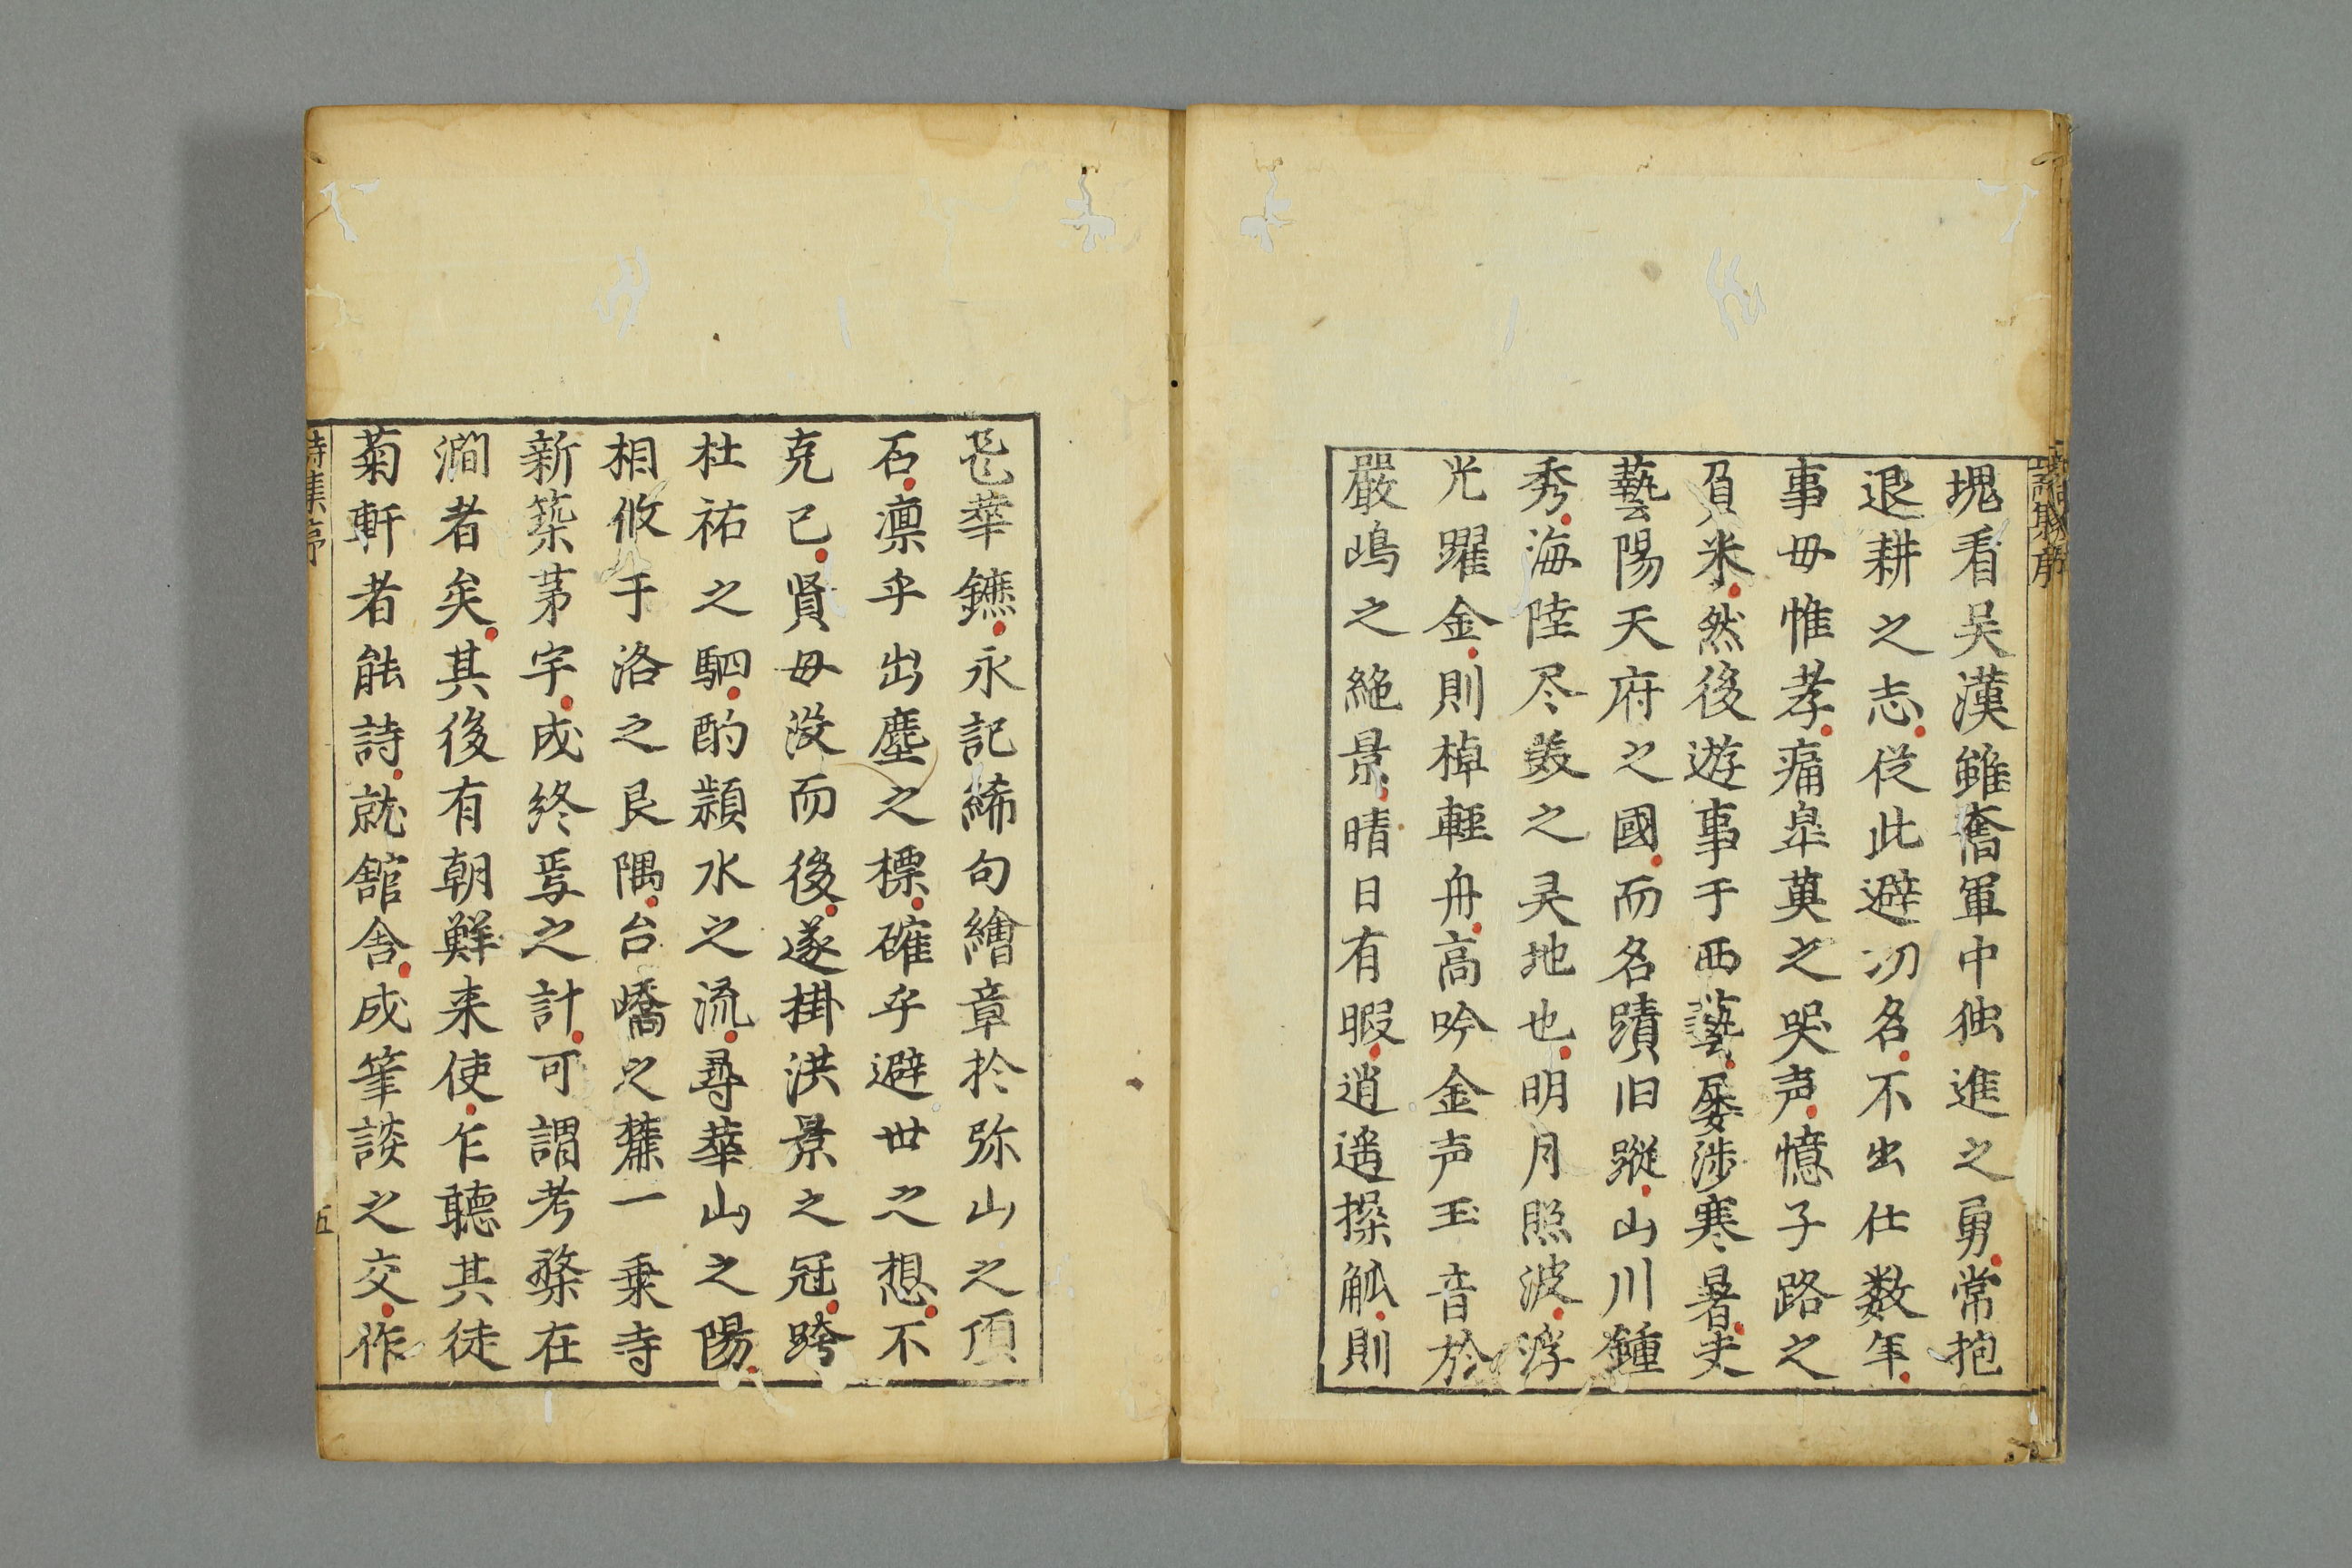 塊看吴漢雖奮軍中独進之勇常抱
退耕之志從此避功名不出仕数年
事母惟孝痛皐莫之哭声憶子路之
負米然後遊事于西藝屡涉寒暑夫
藝陽天府之國而名蹟旧蹤山川鍾
秀海陸尽美之灵地也明月照波浮
光躍金則棹輕舟高吟金声玉音於
嚴嶋之絶景晴日有暇逍遥操觚則
花華鑣永記絺句繪章於弥山之頂
石凛乎出塵之標確乎避世之想不
克已賢母没而後遂掛洪景之冠跨
杜祐之駟酌潁水之流尋華山之陽
相攸于洛之艮隅台嶠之麓一乗寺
新築茅宇成終焉之計可謂考槃在
澗者矣其後有朝鮮来使乍聽其徒
菊軒者能詩就舘舎成筆談之交作
詩集序
五